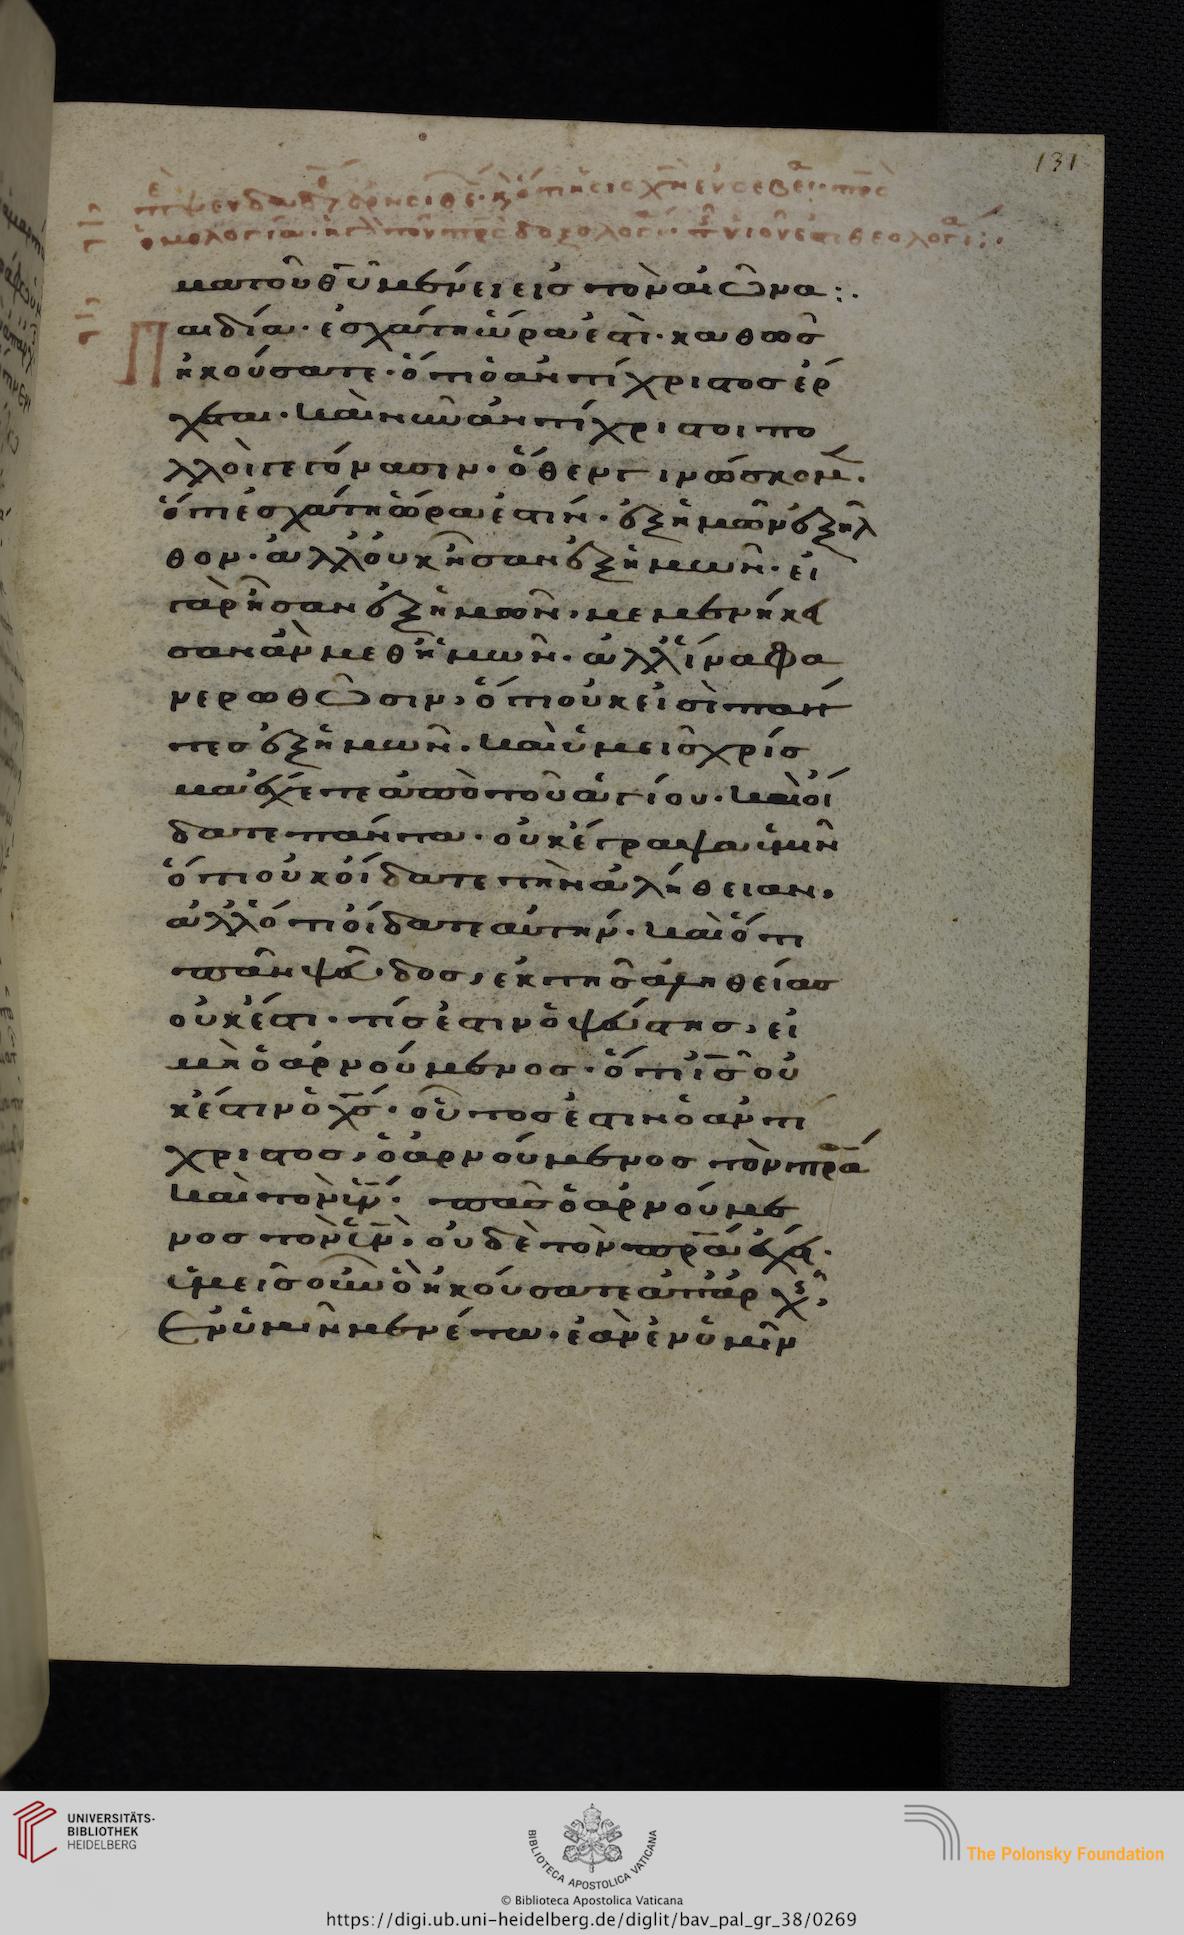 131
ματοῦ θ̅υ̅ μένει εἰς τὸν αἰῶνα:.
Παιδία· ἐσχάτη ὥρα ἐστὶ· καθὼς
ἠκούσατε· ὅτι ὁ ἀντίχριστος ἔρ
χεται· καὶ νῦν ἀντίχριστοι πο
λλοὶ γεγόνασιν· ὅθεν γινώσκομεν
ὅτι ἐσχάτη ὥρα ἐστίν· ἐξ ἡμῶν ἐξῆλ
θον· ἀλλ' οὐκ ἦσαν ἐξ ἡμῶν· εἰ
γὰρ ἦσαν ἐξ ἡμῶν, μεμενήκει
σαν ἂν μεθ' ἡμῶν· ἀλλ' ἵνα φα
νερωθῶσιν, ὅτι οὐκ εἰσὶ πάν
τες ἐξ ἡμῶν. καὶ ὑμεῖς χρίσ
μα ἔχετε ἀπὸ τοῦ ἁγίου· καὶ οἴ
δατε πάντα· οὐκ ἔγραψα ὑμῖν
ὅτι οὐκ οἴδατε τὴν ἀλήθειαν,
ἀλλ' ὅτι οἴδατε αὐτήν· καὶ ὅτι
πᾶν ψεῦδος, ἐκ τῆς ἀληθείας
οὐκ ἔστι· τίς ἐστιν ὁ ψεύστης, εἰ
μὴ ὁ ἀρνούμενος· ὅτι ι̅ς̅ οὐ
κ ἔστιν ὁ χ̅ς̅· οὗτος ἐστιν ὁ ἀντί
χριστος, ὁ ἀρνούμενος τὸν π̅ρ̅α̅
καὶ τὸν υ̅ν̅· πᾶς ὁ ἀρνούμε
νος τὸν υ̅ν̅, οὐδὲ τὸν π̅ρ̅α̅ ἔχει·
ὑμεῖς οὖν ὃ ἠκούσατε ἀπ' ἀρχῆς,
Ἐν ὑμῖν μενέτω· ἐὰν ἐν ὑμῖν
UNIVERSITÄTS-
BIBLIOTHEK
HEIDELBERG
BIBLIOTECA APOSTOLICA VATICANA
The Polonsky Foundation
© Biblioteca Apostolica Vaticana
https://digi.ub.uni-heidelberg.de/diglit/bav_pal_gr_38/0269